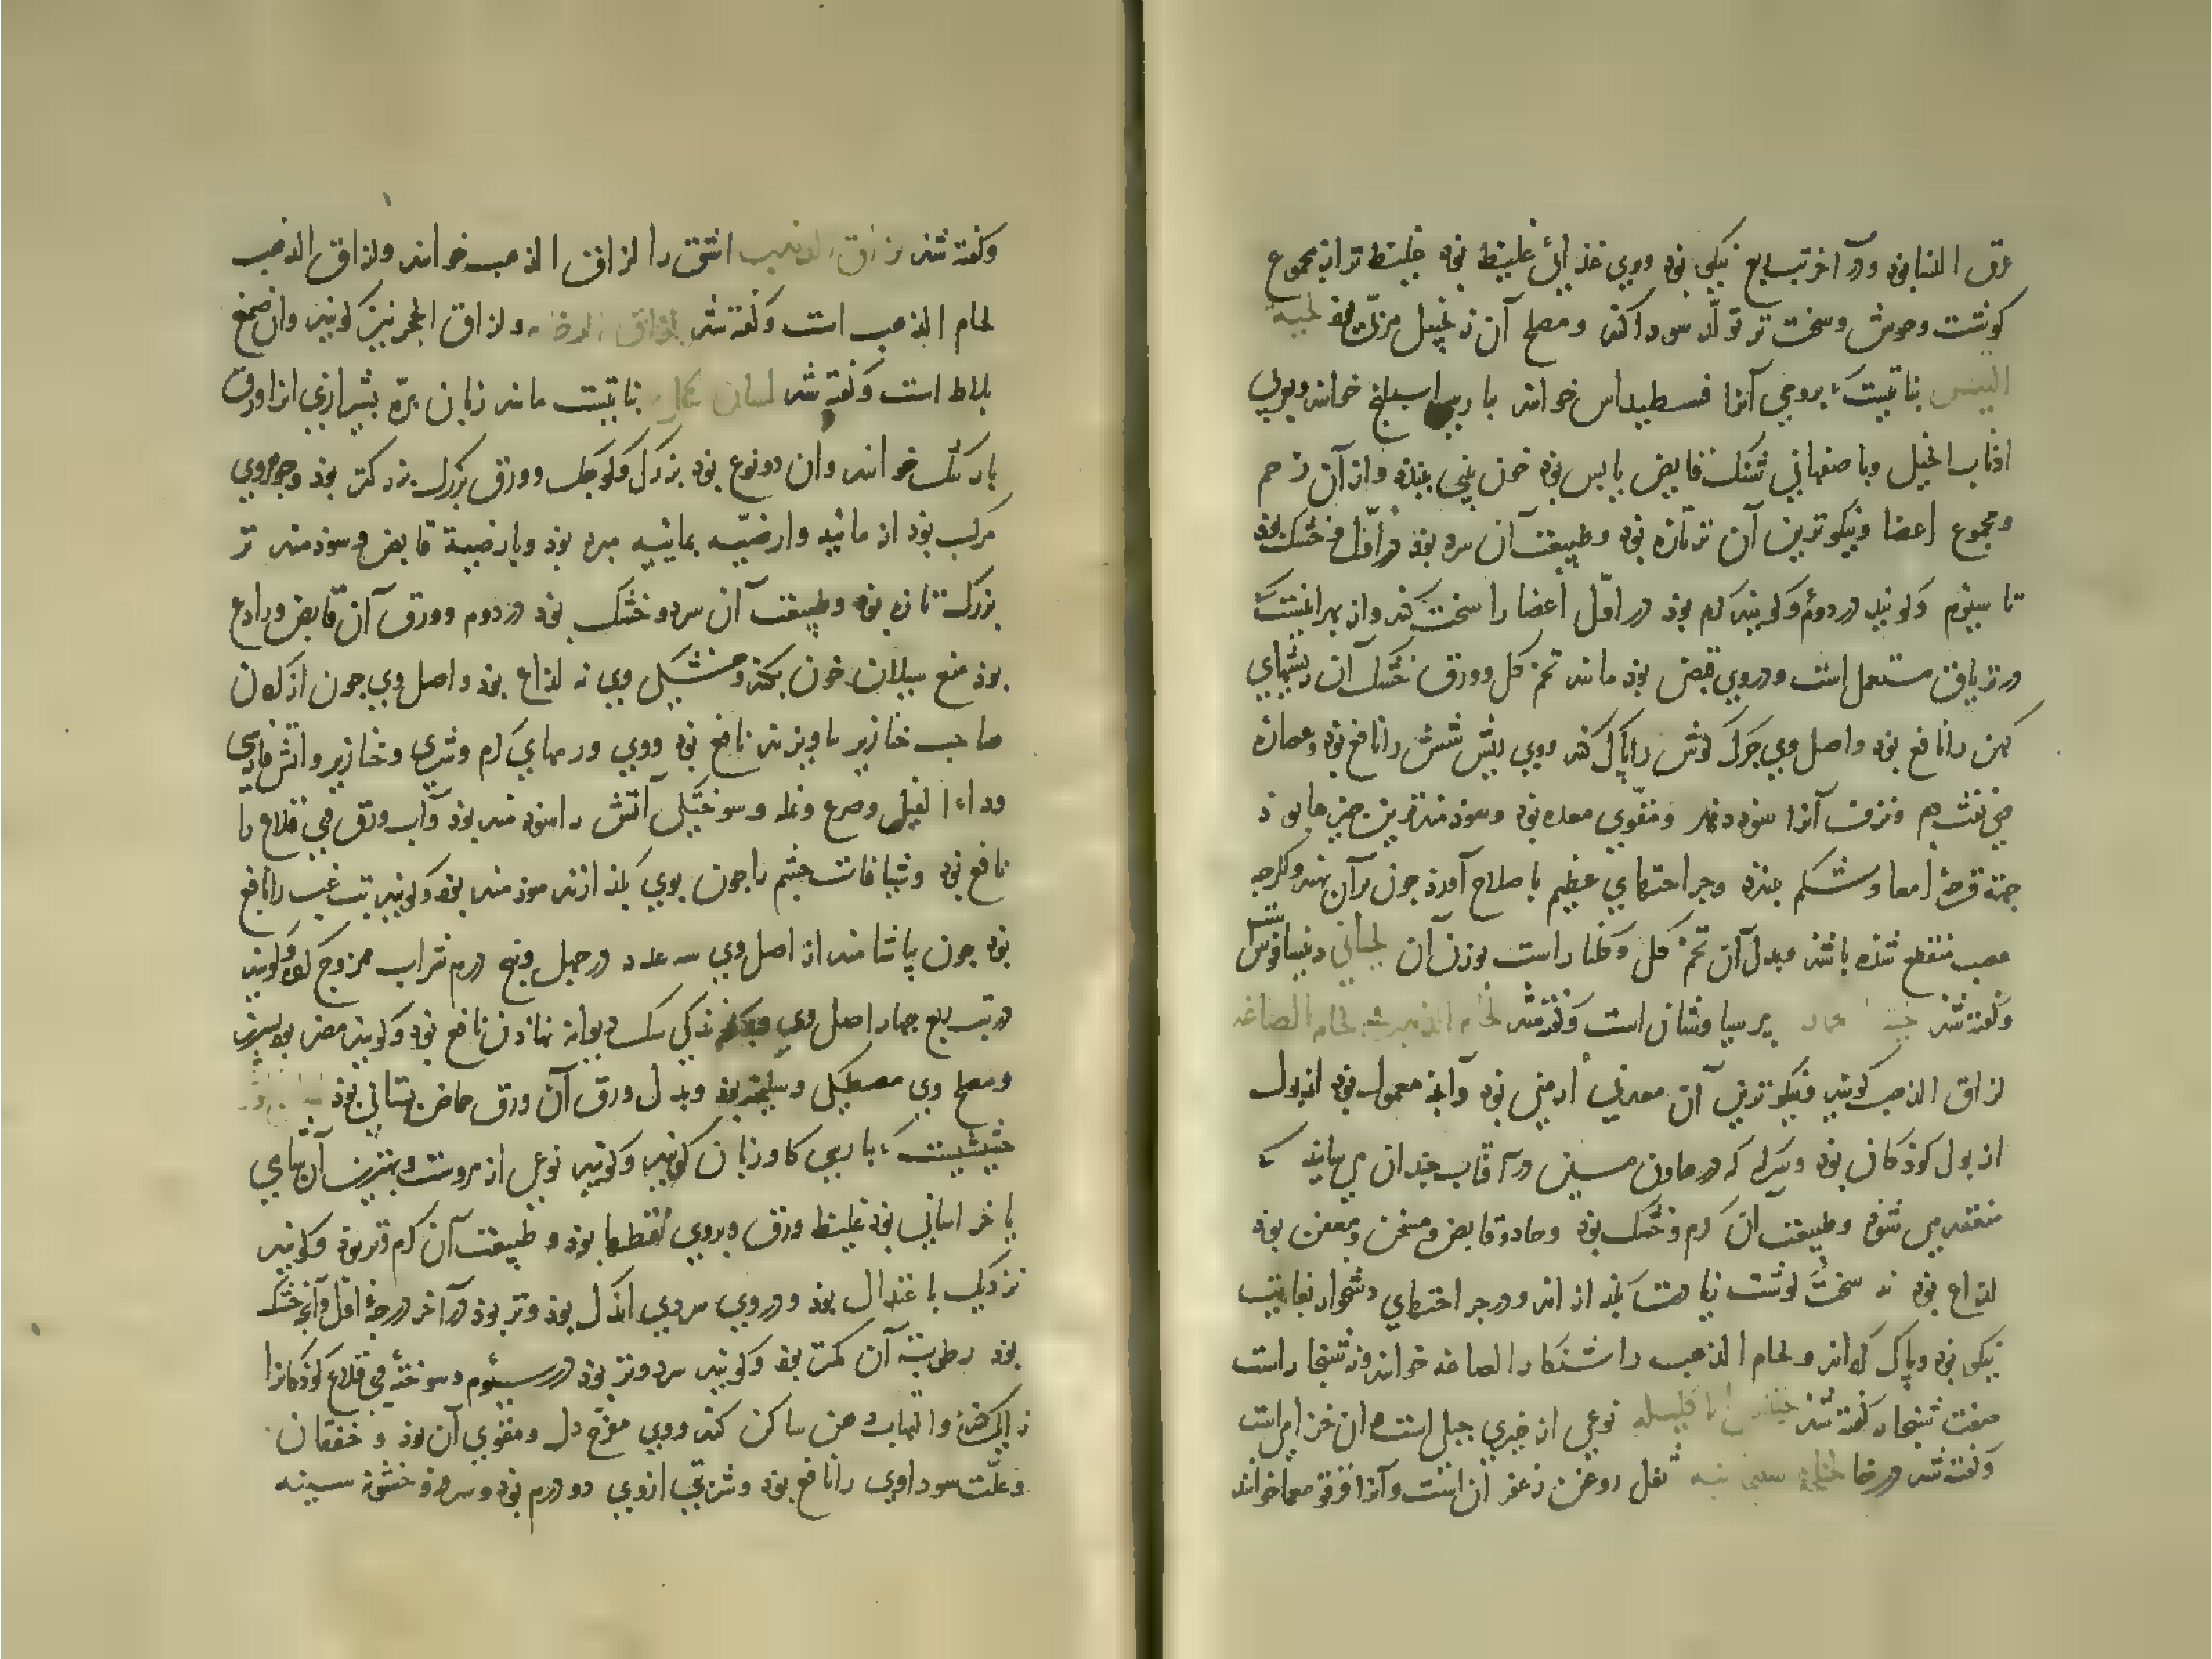 عرق النسا بود و در آخر تب ربع نیکی بود و وی غذائی غلیظ بود غلیظ تر از مجموع
کوشت وحوش و سخت تر تولد سودا کند و مصلح آن زنجبیل مربی بود لحیة
التیس نباتیست برومی آنرا فسطیداس خوانند بارسی اسبلنج خوانند و بعربی
اذناب الخیل و باصفهانی شنک قابض یابس بود خون بینی ببندد و از آن رحم
و مجموع اعضا و نیکوترین آن تر تازه بود و طبیعت آن سرد بود در اول و خشک بود
تا سیوم و کویند در دوم و کویند کرم بود در اول اعضا را سخت کند و از بهر اینست
در تریاق مستعمل است و در وی قبض بود مانند تخم کل و ورق خشک آن ریشهای
کهن را نافع بود و اصل وی جرک کوش را پاک کند و وی ریش شش را نافع بود و عصاره
وی نفث دم و نزف آنرا سود دهد و مقوی معده بود و سودمندترین جیزها بود
جهة قرحه امعا و شکم ببندد و جراحتهای عظیم باصلاح آورد جون بر آن نهند و اکرجه
عصب منقطع شده باشد و بدل آن تخم کل و کلنار است بوزن آن لحیانی دنیساقوس است
و کفته شد لحیة الحمار پرسیاوشان است و کفته شد لحام الذهب لحام الصاغه
لزاق الذهب کویند و نیکوترین آن معدنی ارمنی بود و آنجه معمول بود از بول
از بول کوذکان بود و سرکه که در هاون مسین در آفتاب جندان می سایند که
منعقد می شود و طبیعت آن کرم و خشک بود و حاد و قابض و مسخن و معفن بود
لذاع بود نه سخت کوشت زیادت بکذازاند و در جراحتهای دشخوار بغایت
نیکو بود و پاک کرداند و لحام الذهب را شنکار الصاغه خوانند و نه شنجار است
صفت شنجار کفته شد نوعی از خیری جبلی است و آن خزامی است
و کفته شد در خا ثفل روغن زعفران است و آنرا قرقومعما خوانند
و کفته شد لزاق الذهب اشق را لزاق الذهب خوانند و لزاق الذهب
لحام الذهب است و کفته شد لزاق الرخام و لزاق الحجر نیز کویند و آن صمغ
بلاط است و کفته شد لسان الحمل نباتیست مانند زبان بره بشیرازی آنرا ورق
بارتنک خوانند و آن دو نوع بود بزرک و کوجک و ورق بزرک بزرکتر بود و جوهر وی
مرکب بود از مائیه و ارضیه بمائیه مبرد بود و بارضیة قابض و سودمند تر
بزرک تازه بود و طبیعت آن سرد و خشک بود در دوم و ورق آن قابض و رادع
بود منع سیلان خون بکند و خشکی وی نه لذاع بود و اصل وی جون از کردن
صاحب خنازیر بیاویزند نافع بود و وی ورمهای کرم و شری و خنازیر و آتش فارسی
و داء الفیل و صرع و نمله و سوختکی آتش را سود مند بود و آب ورق وی قلاع را
نافع بود و شیافات جشم را جون بوی بکذازند سودمند بود و کویند تب غب را نافع
بود جون بیاشامند از اصل وی سه عدد در جهل و پنج درم شراب ممزوج کرده و کویند
در تب ربع جهار اصل وی کزندکی سک دیوانه نهاذن نافع بود و کویند مضر بود بسپرز
و مصلح وی مصطکی و سلیخه بود و بدل ورق آن ورق حماض بستانی بود لسان الثور
حشیشیست بارسی کاو زبان کویند و کویند نوعی از مروست و بهترین آن شامی
یا خراسانی بود غلیظ ورق و بروی نقطها بود و طبیعت آن کرم و تر بود و کویند
نزدیک باعتدال بود و در وی سردی اندک بود و تر بود در آخر درجه اول و آنجه خشک
بود رطوبت آن کمتر بود و کویند سرد و تر بود در سیوم و سوخته وی قلاع کوذکانرا
زایل کند و التهاب دهن ساکن کند و وی مفرح دل و مقوی آن بود و خفقان
و علت سوداوی را نافع بود و شربتی از وی دو درم بود و سرفه و خشونة سینه